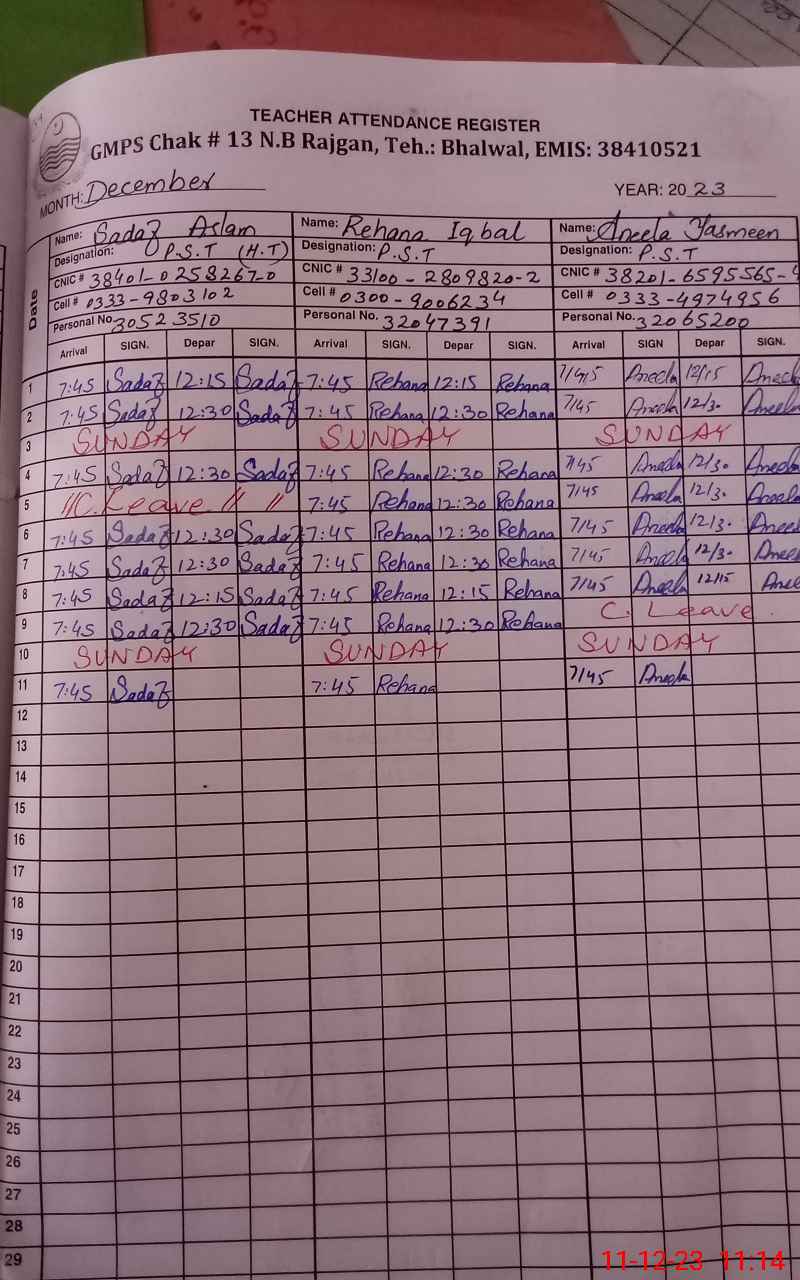 TEACHER ATTENDANCE REGISTER
GMPS Chak # 13 N.B Rajgan, Teh.: Bhalwal, EMIS: 38410521
MONTH: December YEAR: 2023
Name: Sadaf Aslam Name: Rehana Iqbal Name: Aneela Yasmeen
Designation: P.S.T (H.T) Designation: P.S.T Designation: P.S.T
CNIC # 38401-0258267-0 CNIC # 33100-2809820-2 CNIC # 38201-6595565-4
Cell # 0333-9803102 Cell # 0300-9006234 Cell # 0333-4974956
Personal No. 30523510 Personal No. 32047391 Personal No. 32065200
Date Arrival SIGN. Depar SIGN. Arrival SIGN. Depar SIGN. Arrival SIGN Depar SIGN.
1 7:45 Sadaf 12:15 Sadaf 7:45 Rehana 12:15 Rehana 7/45 Aneela 12/15 Aneela
2 7:45 Sadaf 12:30 Sadaf 7:45 Rehana 12:30 Rehana 7/45 Aneela 12/30 Aneela
3 SUNDAY SUNDAY SUNDAY
4 7:45 Sadaf 12:30 Sadaf 7:45 Rehana 12:30 Rehana 7/45 Aneela 12/30 Aneela
5 // C. Leave // // 7:45 Rehana 12:30 Rehana 7/45 Aneela 12/30 Aneela
6 7:45 Sadaf 12:30 Sadaf 7:45 Rehana 12:30 Rehana 7/45 Aneela 12/30 Aneela
7 7:45 Sadaf 12:30 Sadaf 7:45 Rehana 12:30 Rehana 7/45 Aneela 12/30 Aneela
8 7:45 Sadaf 12:15 Sadaf 7:45 Rehana 12:15 Rehana 7/45 Aneela 12/15 Aneela
9 7:45 Sadaf 12:30 Sadaf 7:45 Rehana 12:30 Rehana C. Leave.
10 SUNDAY SUNDAY SUNDAY
11 7:45 Sadaf 7:45 Rehana 7/45 Aneela
12
13
14
15
16
17
18
19
20
21
22
23
24
25
26
27
28
29
11-12-23 11:14